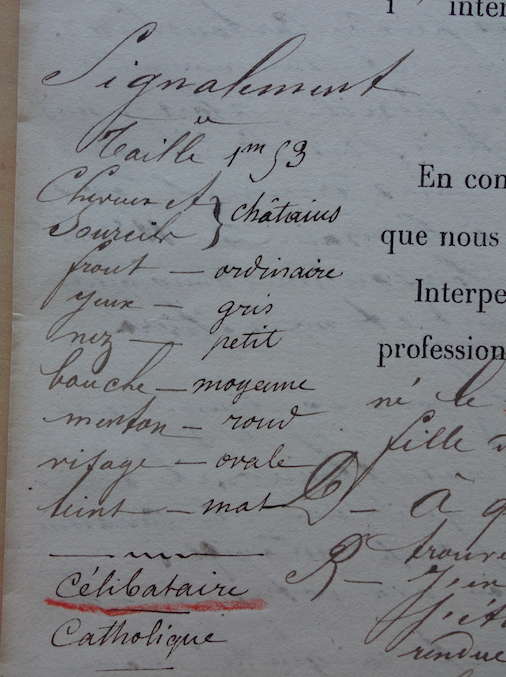 Signalement
Taille 1m 53
Cheveux et
Sourcils } châtains
front — ordinaire
yeux — gris
nez — petit
bouche — moyenne
menton — rond
visage — ovale
teint — mat
Célibataire
Catholique
inter
En con
que nous
Interpe
profession
né le
fille d
D — à q
trouve
R — J'en
j'ét
rendue